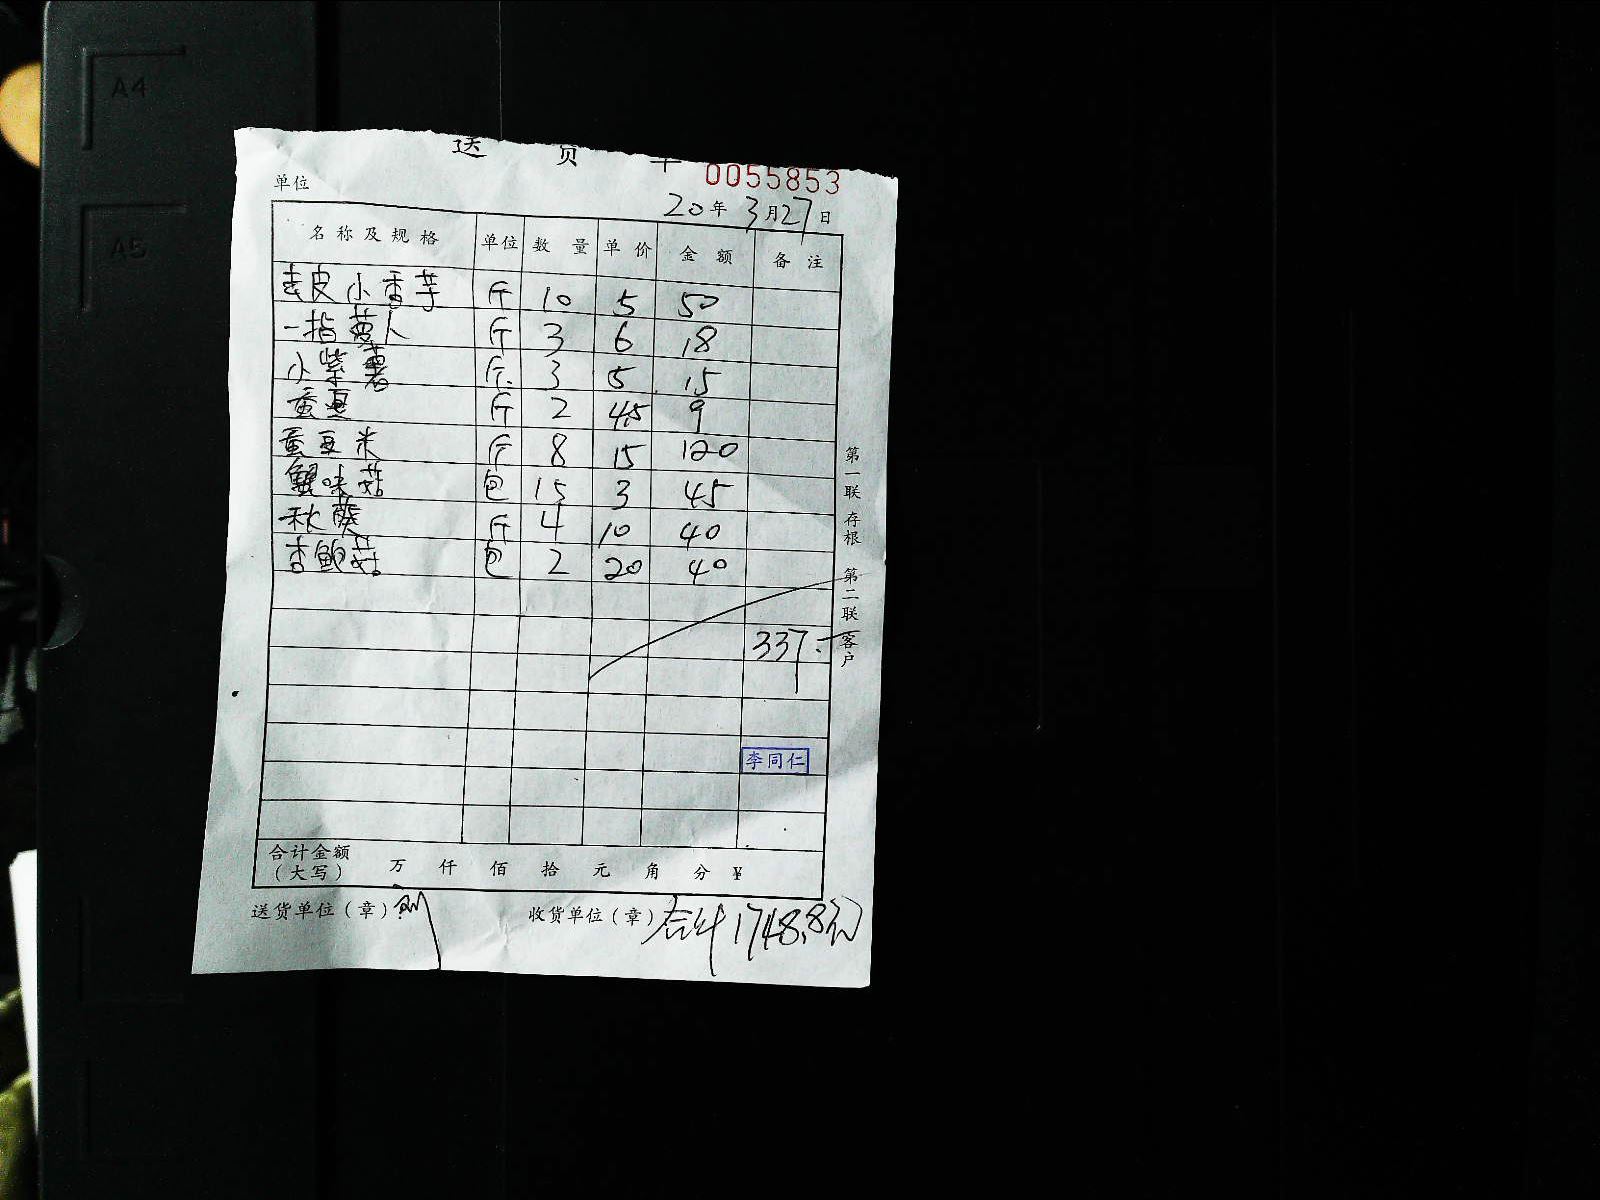 A4
A5
送货单
0055853
单位
20年3月27日
名称及规格 单位 数量 单价 金额 备注
去皮小香芋 斤 10 5 50
一指萝人 斤 3 6 18
小紫薯 斤 3 5 15
蚕豆 斤 2 4.5 9
蚕豆米 斤 8 15 120
蟹味菇 包 15 3 45
秋葵 斤 4 10 40
杏鲍菇 包 2 20 40
337.-
李同仁
合计金额
(大写) 万 仟 佰 拾 元 角 分 ¥
送货单位(章) 收货单位(章) 合计1748.8元
第一联存根 第二联客户